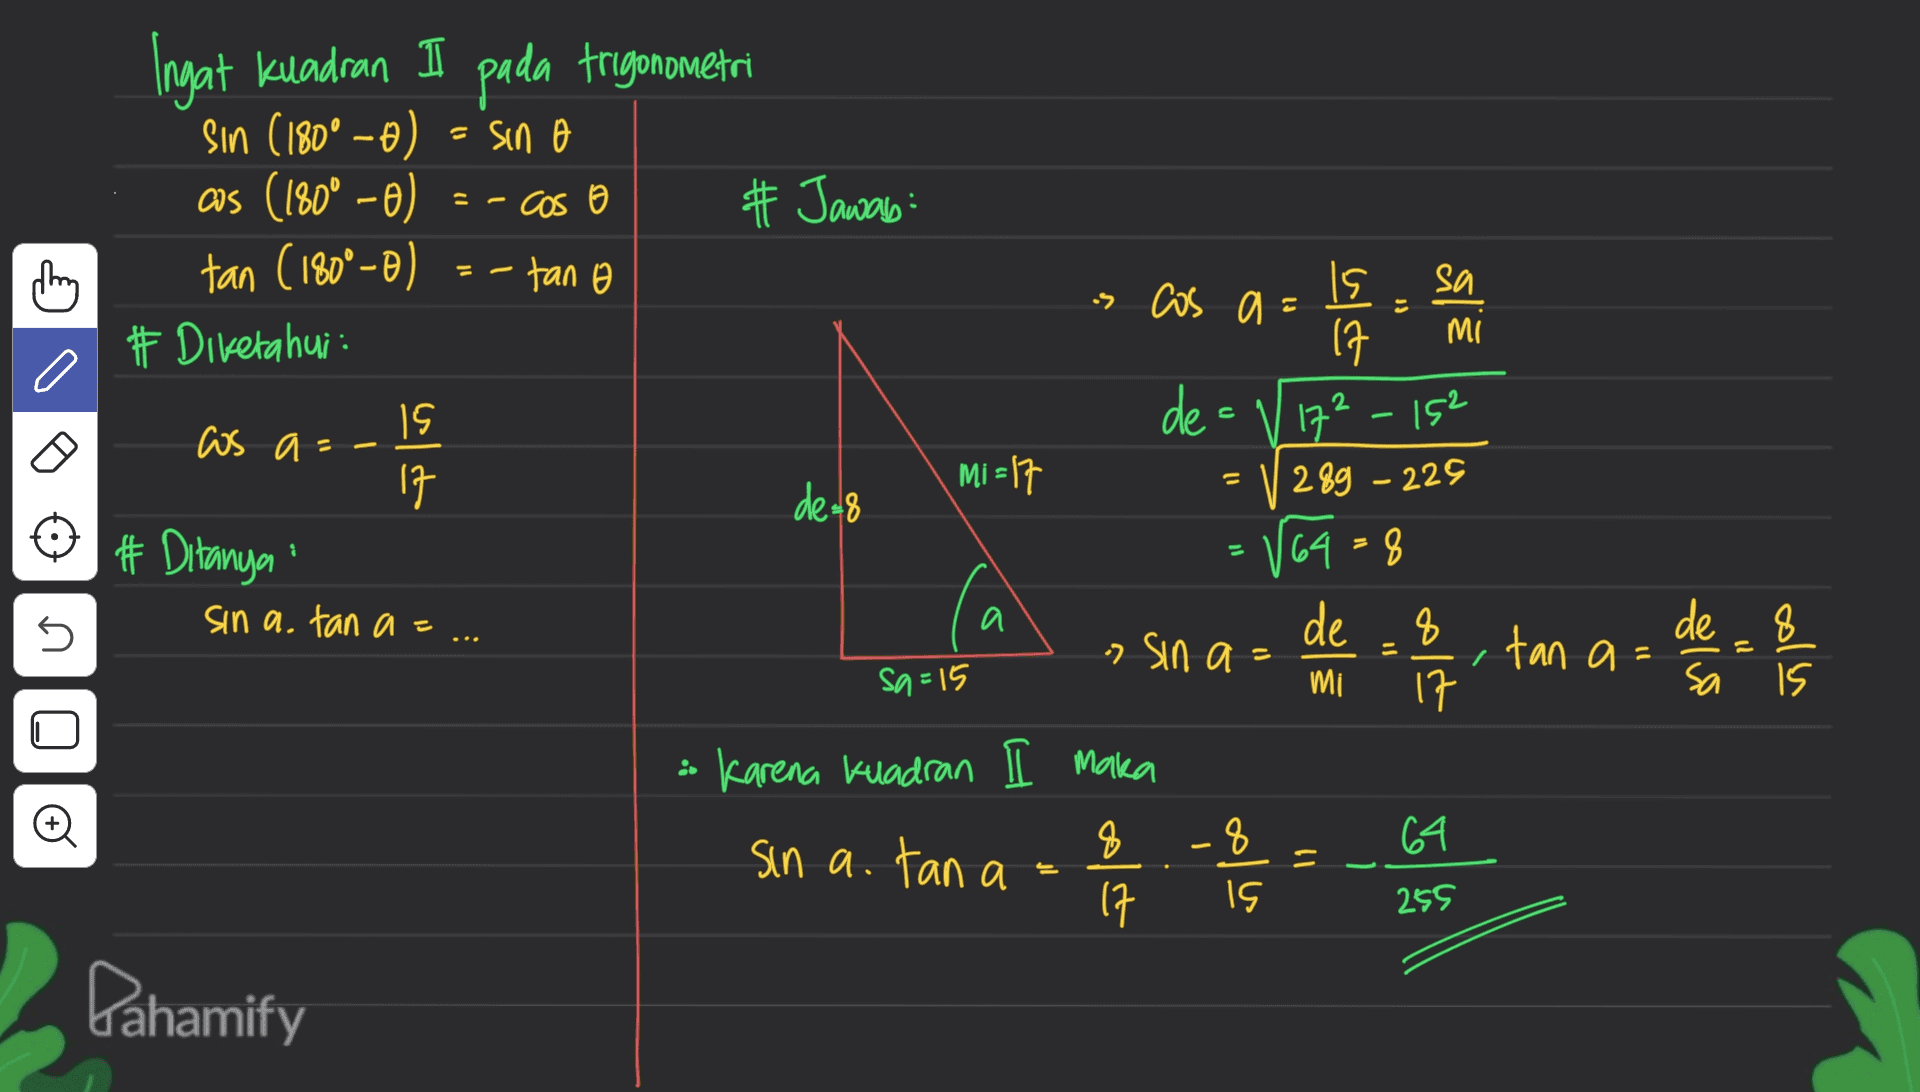 Ingat kuadran II pada trigonometri
sin (180° - θ) = sin θ
cos (180° - θ) = - cos θ
tan (180° - θ) = - tan θ
# Diketahui:
cos a = - 15/17
# Ditanya:
sin a. tan a = ...
# Jawab:
-> cos a = 15/17 = sa/mi
de = √17² - 15²
= √289 - 225
= √64 = 8
de=8
Mi=17
a
sa=15
-> sin a = de/mi = 8/17, tan a = de/sa = 8/15
∴ karena kuadran II maka
sin a. tan a = 8/17 . -8/15 = - 64/255
Pahamify